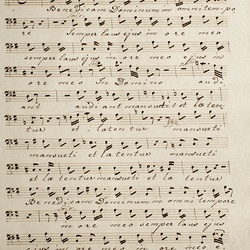 Benedicam Dominum in omni tempo
re semper laus ejus in ore meo
semper laus ejus in ore meo ejus in
ore meo In Domino audi
ant audiant mansueti et læten
tur et lætentur mansueti
mansueti et lætentur mansueti
et lætentur mansueti et lætentur
Benedicam Dominum in omni tempore
in ore meo semper laus ejus
ejus in ore meo in ore meo